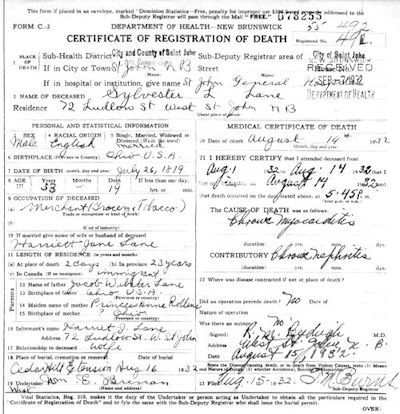 This form placed in an envelope, marked "Dominion Statistics—Free, penalty for improper use $300
Sub-Deputy Registrar will pass through the Mail "FREE." D78255
FORM C.-3 DEPARTMENT OF HEALTH—NEW BRUNSWICK 55 492
CERTIFICATE OF REGISTRATION OF DEATH
1 PLACE OF DEATH
Sub-Health District City and County of Saint John Sub-Deputy Registrar area City of Saint John
If in City or Town St John N B Street
NEW BRUNSWICK
RECEIVED
SEP 1932
DEPARTMENT OF HEALTH
If in hospital or institution, give name St John General Hosp
2 NAME OF DECEASED Sylvester L Lane
Residence 72 Ludlow St West St John N B
PERSONAL AND STATISTICAL INFORMATION
3 SEX Male
4 RACIAL ORIGIN English
5 Single, Married, Widowed or Divorced married
6 BIRTHPLACE Ohio U.S.A.
7 DATE OF BIRTH July 26, 1879
Month, day and year
8 AGE Years 53 Months Days 19 If less than one day, hrs. or min.
9 OCCUPATION OF DECEASED
Merchant Grocery (Tobacco)
Trade or occupation or kind of work
10 If married give name of wife or husband of deceased
Harriett Jane Lane
11 LENGTH OF RESIDENCE (in years and months)
(a) At place of death 2 days (b) in Province 23 years
(c) In Canada (if an immigrant)
Parents
12 Name of father Jacob Wilbert Lane
13 Birthplace of father Ohio U.S.A.
14 Maiden name of mother Princess Anne Rolland
15 Birthplace of mother ? Ohio
16 Informant's name Harriet J. Lane
Address 72 Ludlow St. W. St John
17 Relationship to deceased wife
18 Place of burial, cremation or removal Date of burial
Cedar Hill Extension Aug 16 1932
19 Undertaker Wm E. Brenan
West
MEDICAL CERTIFICATE OF DEATH
20 DATE OF DEATH August 14th 1932
Month, day and year
21 I HEREBY CERTIFY that I attended deceased from
Aug 1 1932 to Aug 14 1932
August 14 1932
death occurred on the date stated above, at 5.45 P.m.
The CAUSE OF DEATH was as follows:
Chronic Myocarditis
(duration) yrs. mos. ds.
CONTRIBUTORY Chronic Nephritis
(duration) yrs. mos. ds.
22 Where was disease contracted if not at place of death?
Did an operation precede death? No Date of
Nature of operation
Was there an autopsy?
M.D.
West St John N. B.
August 15 1932
23 Filed Aug. 15 1932. J.M. Burns
Sub-Deputy Registrar
Vital Statistics, Reg. 210, makes it the duty of the Undertaker or person acting as Undertaker to obtain all the particulars required in the
"Certificate of Registration of Death" and to file same with the Sub-Deputy Registrar who shall issue the burial permit.
OVER: